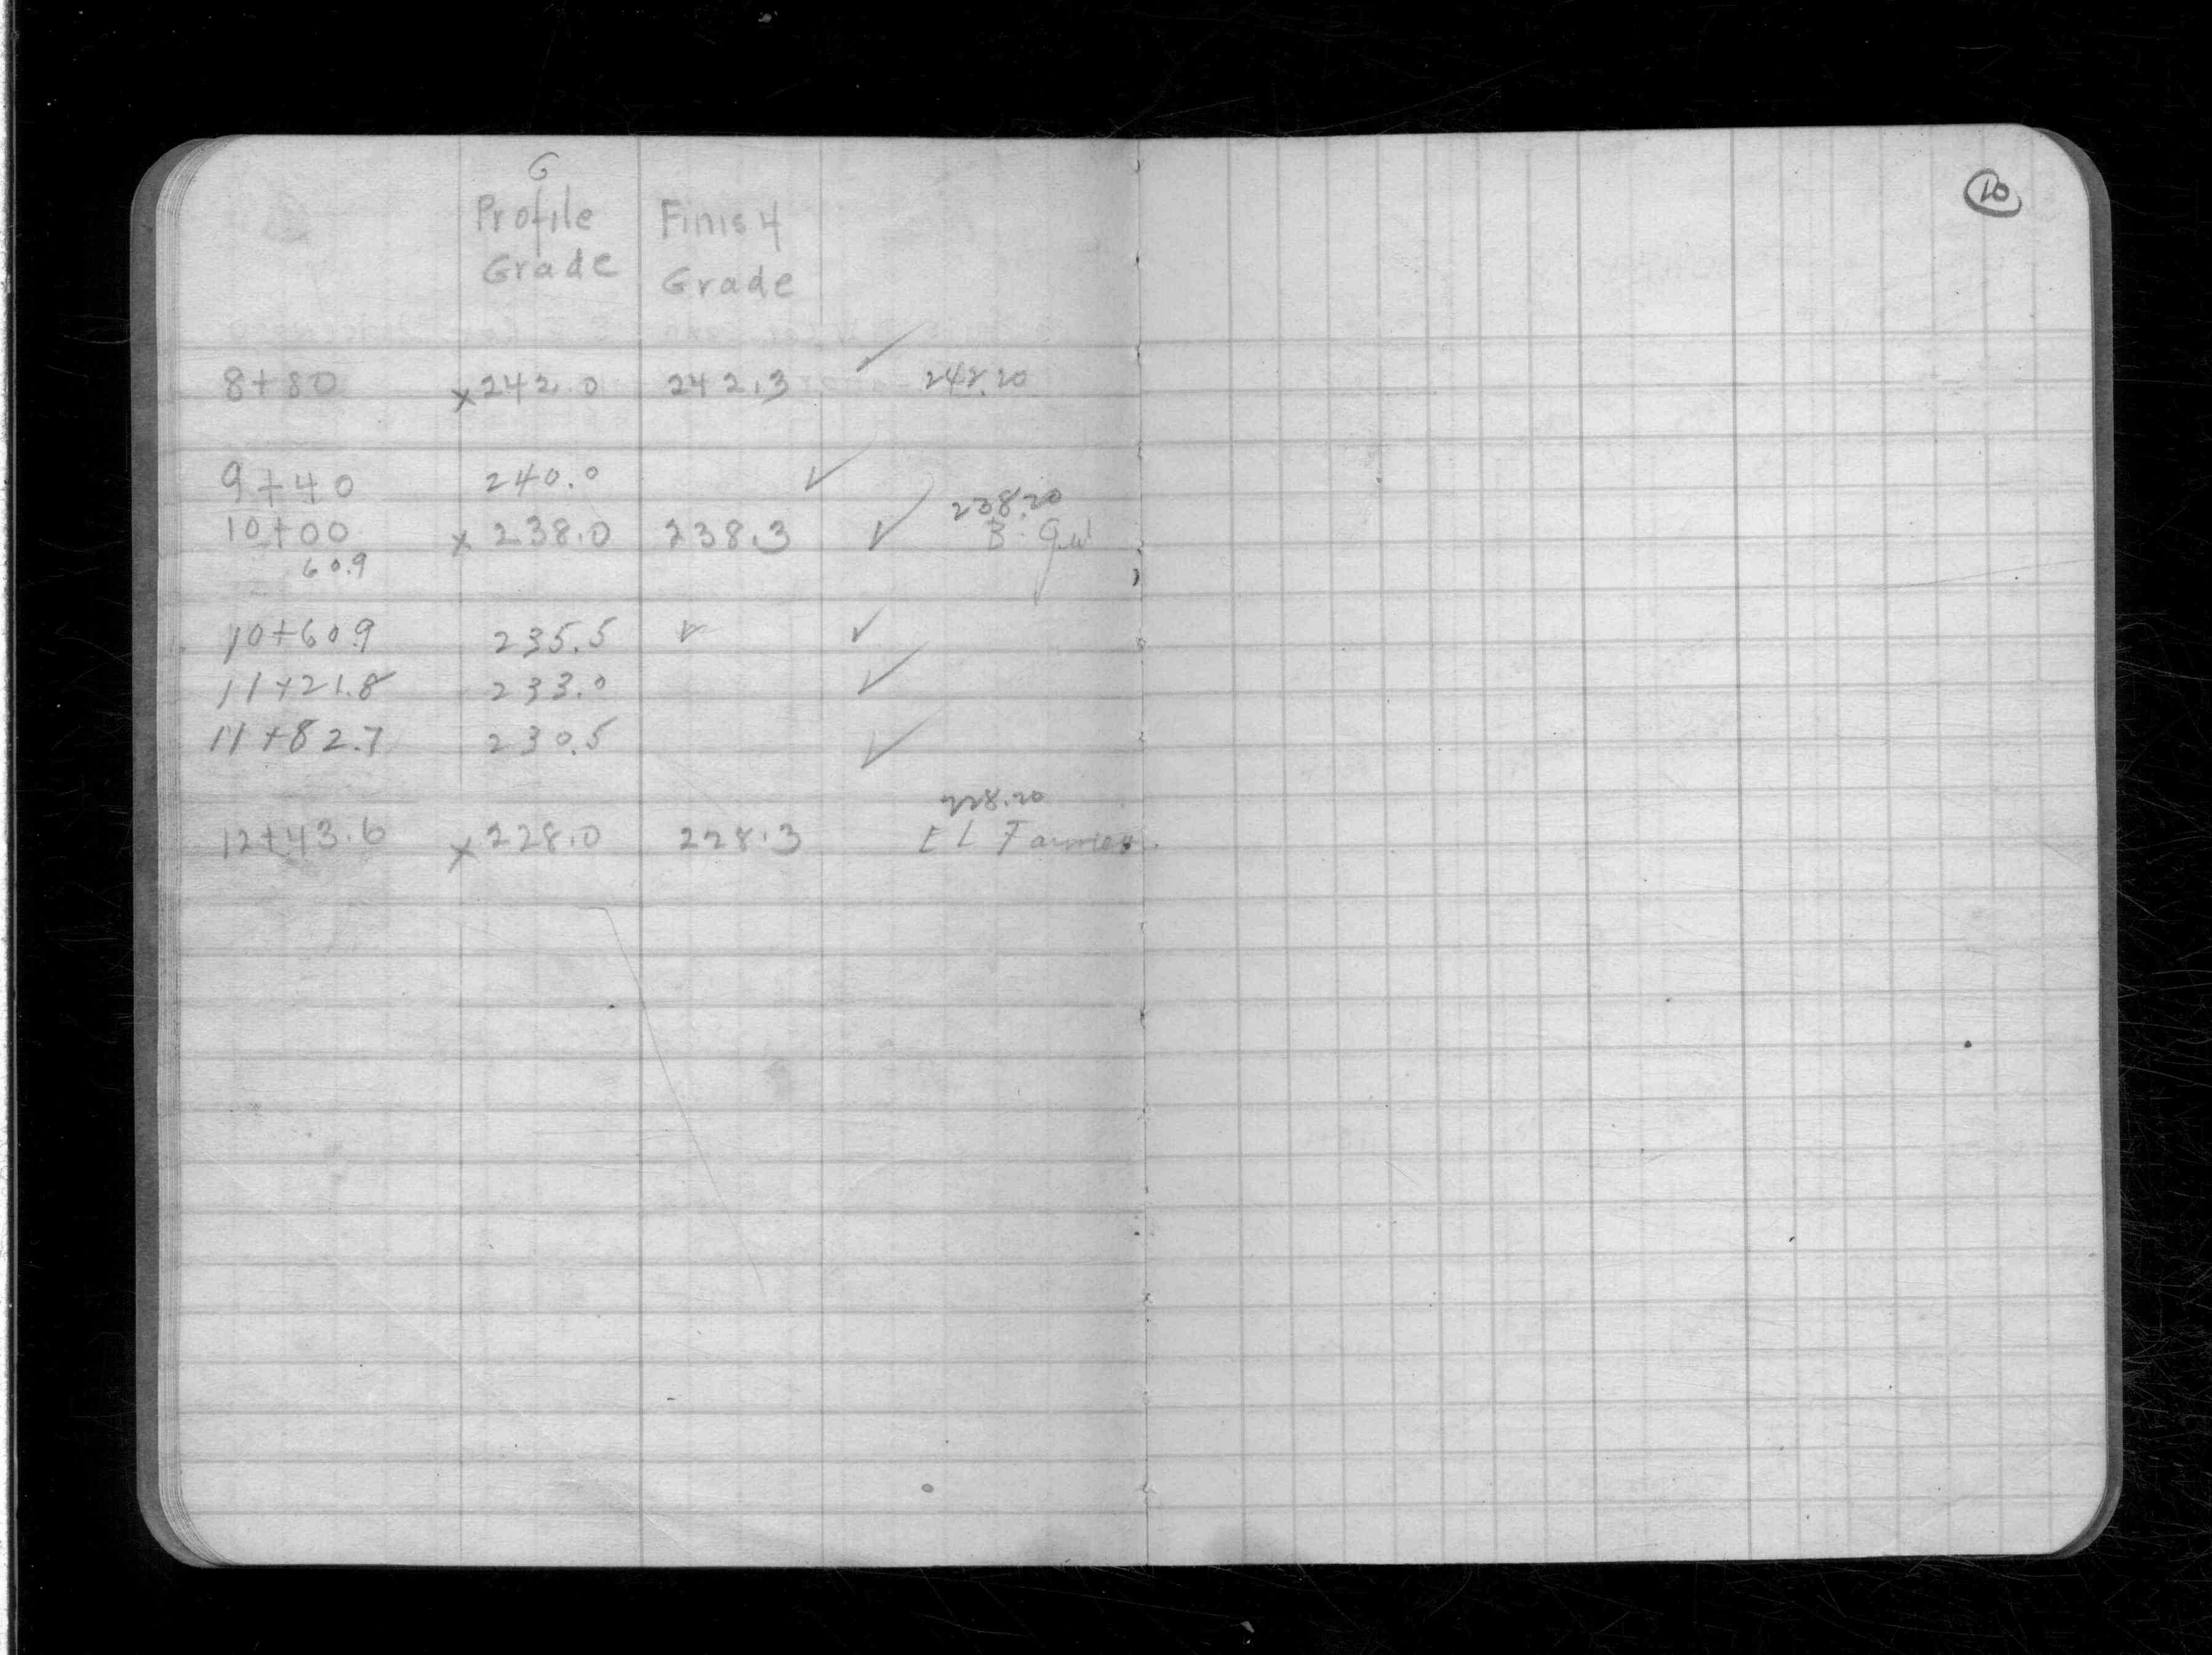 10
G
Profile Finish
Grade Grade
8+80 x 242.0 242.3 ✓ 242.20
9+40 240.0 ✓
238.20
10+00 x 238.0 238.3 ✓ B
60.9
10+60.9 235.5 ✓ ✓
11+21.8 233.0 ✓
11+82.7 230.5 ✓
228.20
12+43.6 x 228.0 228.3 EL